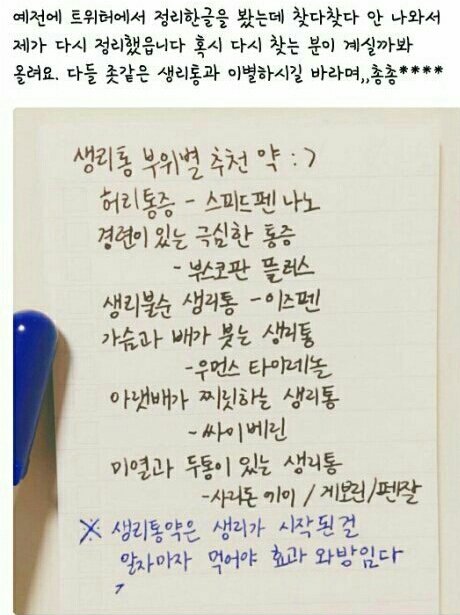 예전에 트위터에서 정리한글을 봤는데 찾다찾다 안 나와서
제가 다시 정리했읍니다 혹시 다시 찾는 분이 계실까봐
올려요. 다들 좃같은 생리통과 이별하시길 바라며,,총총****
생리통 부위별 추천 약 : >
허리통증 - 스피드펜 나노
경련이 있는 극심한 통증
- 부스코판 플러스
생리불순 생리통 - 이즈펜
가슴과 배가 붓는 생리통
- 우먼스 타이레놀
아랫배가 찌릿하는 생리통
- 싸이베린
미열과 두통이 있는 생리통
- 사리돈 에이 / 게보린/펜잘
※ 생리통약은 생리가 시작된걸
알자마자 먹어야 효과 와방임다